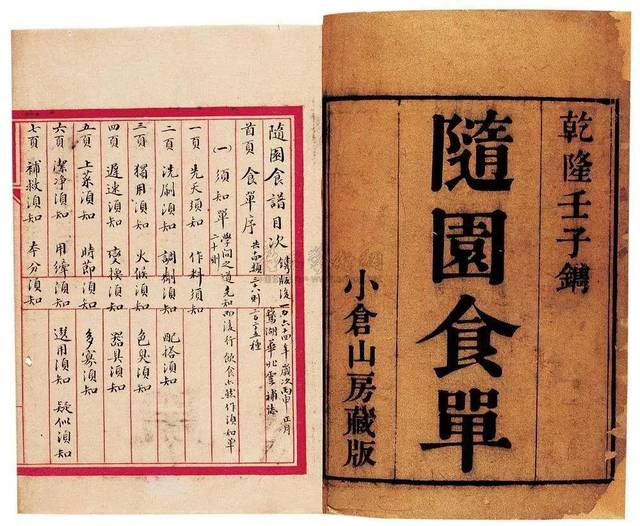 乾隆壬子鐫
隨園食單
小倉山房藏版
隨園食譜目次 鐫版後一百六十四年歲次丙申正月
首頁 食單序
(一) 須知單 學問之道先知而後行飲食亦然作須知單
二十則
一頁 先天須知 作料須知
二頁 洗刷須知 調劑須知 配搭須知
三頁 獨用須知 火候須知 色臭須知
四頁 遲速須知 變換須知 器具須知
五頁 上菜須知 時節須知 多寡須知
六頁 潔淨須知 用縴須知 選用須知 疑似須知
七頁 補救須知 本分須知